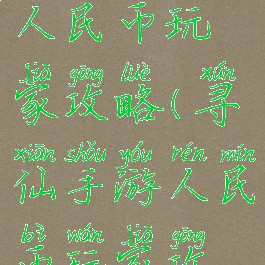 人民币玩
jiā gōng lüè xún
家攻略(寻
xiān shǒu yóu rén mín
仙手游人民
bì wán jiā gōng
币玩家攻